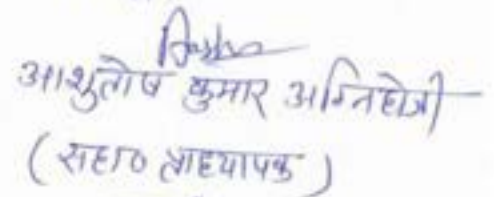 आशुतोष कुमार अग्निहोत्री
(सहा० प्राध्यापक)